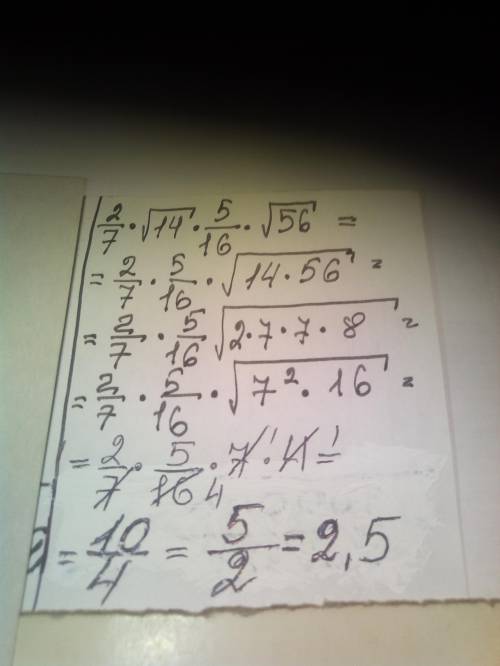 2/7 · √14 · 5/16 · √56 =
= 2/7 · 5/16 · √(14 · 56) =
= 2/7 · 5/16 √(2 · 7 · 7 · 8) =
= 2/7 · 5/16 · √(7² · 16) =
= 2/7 · 5/16 4 · 7 1 · 4 1 =
= 10/4 = 5/2 = 2,5